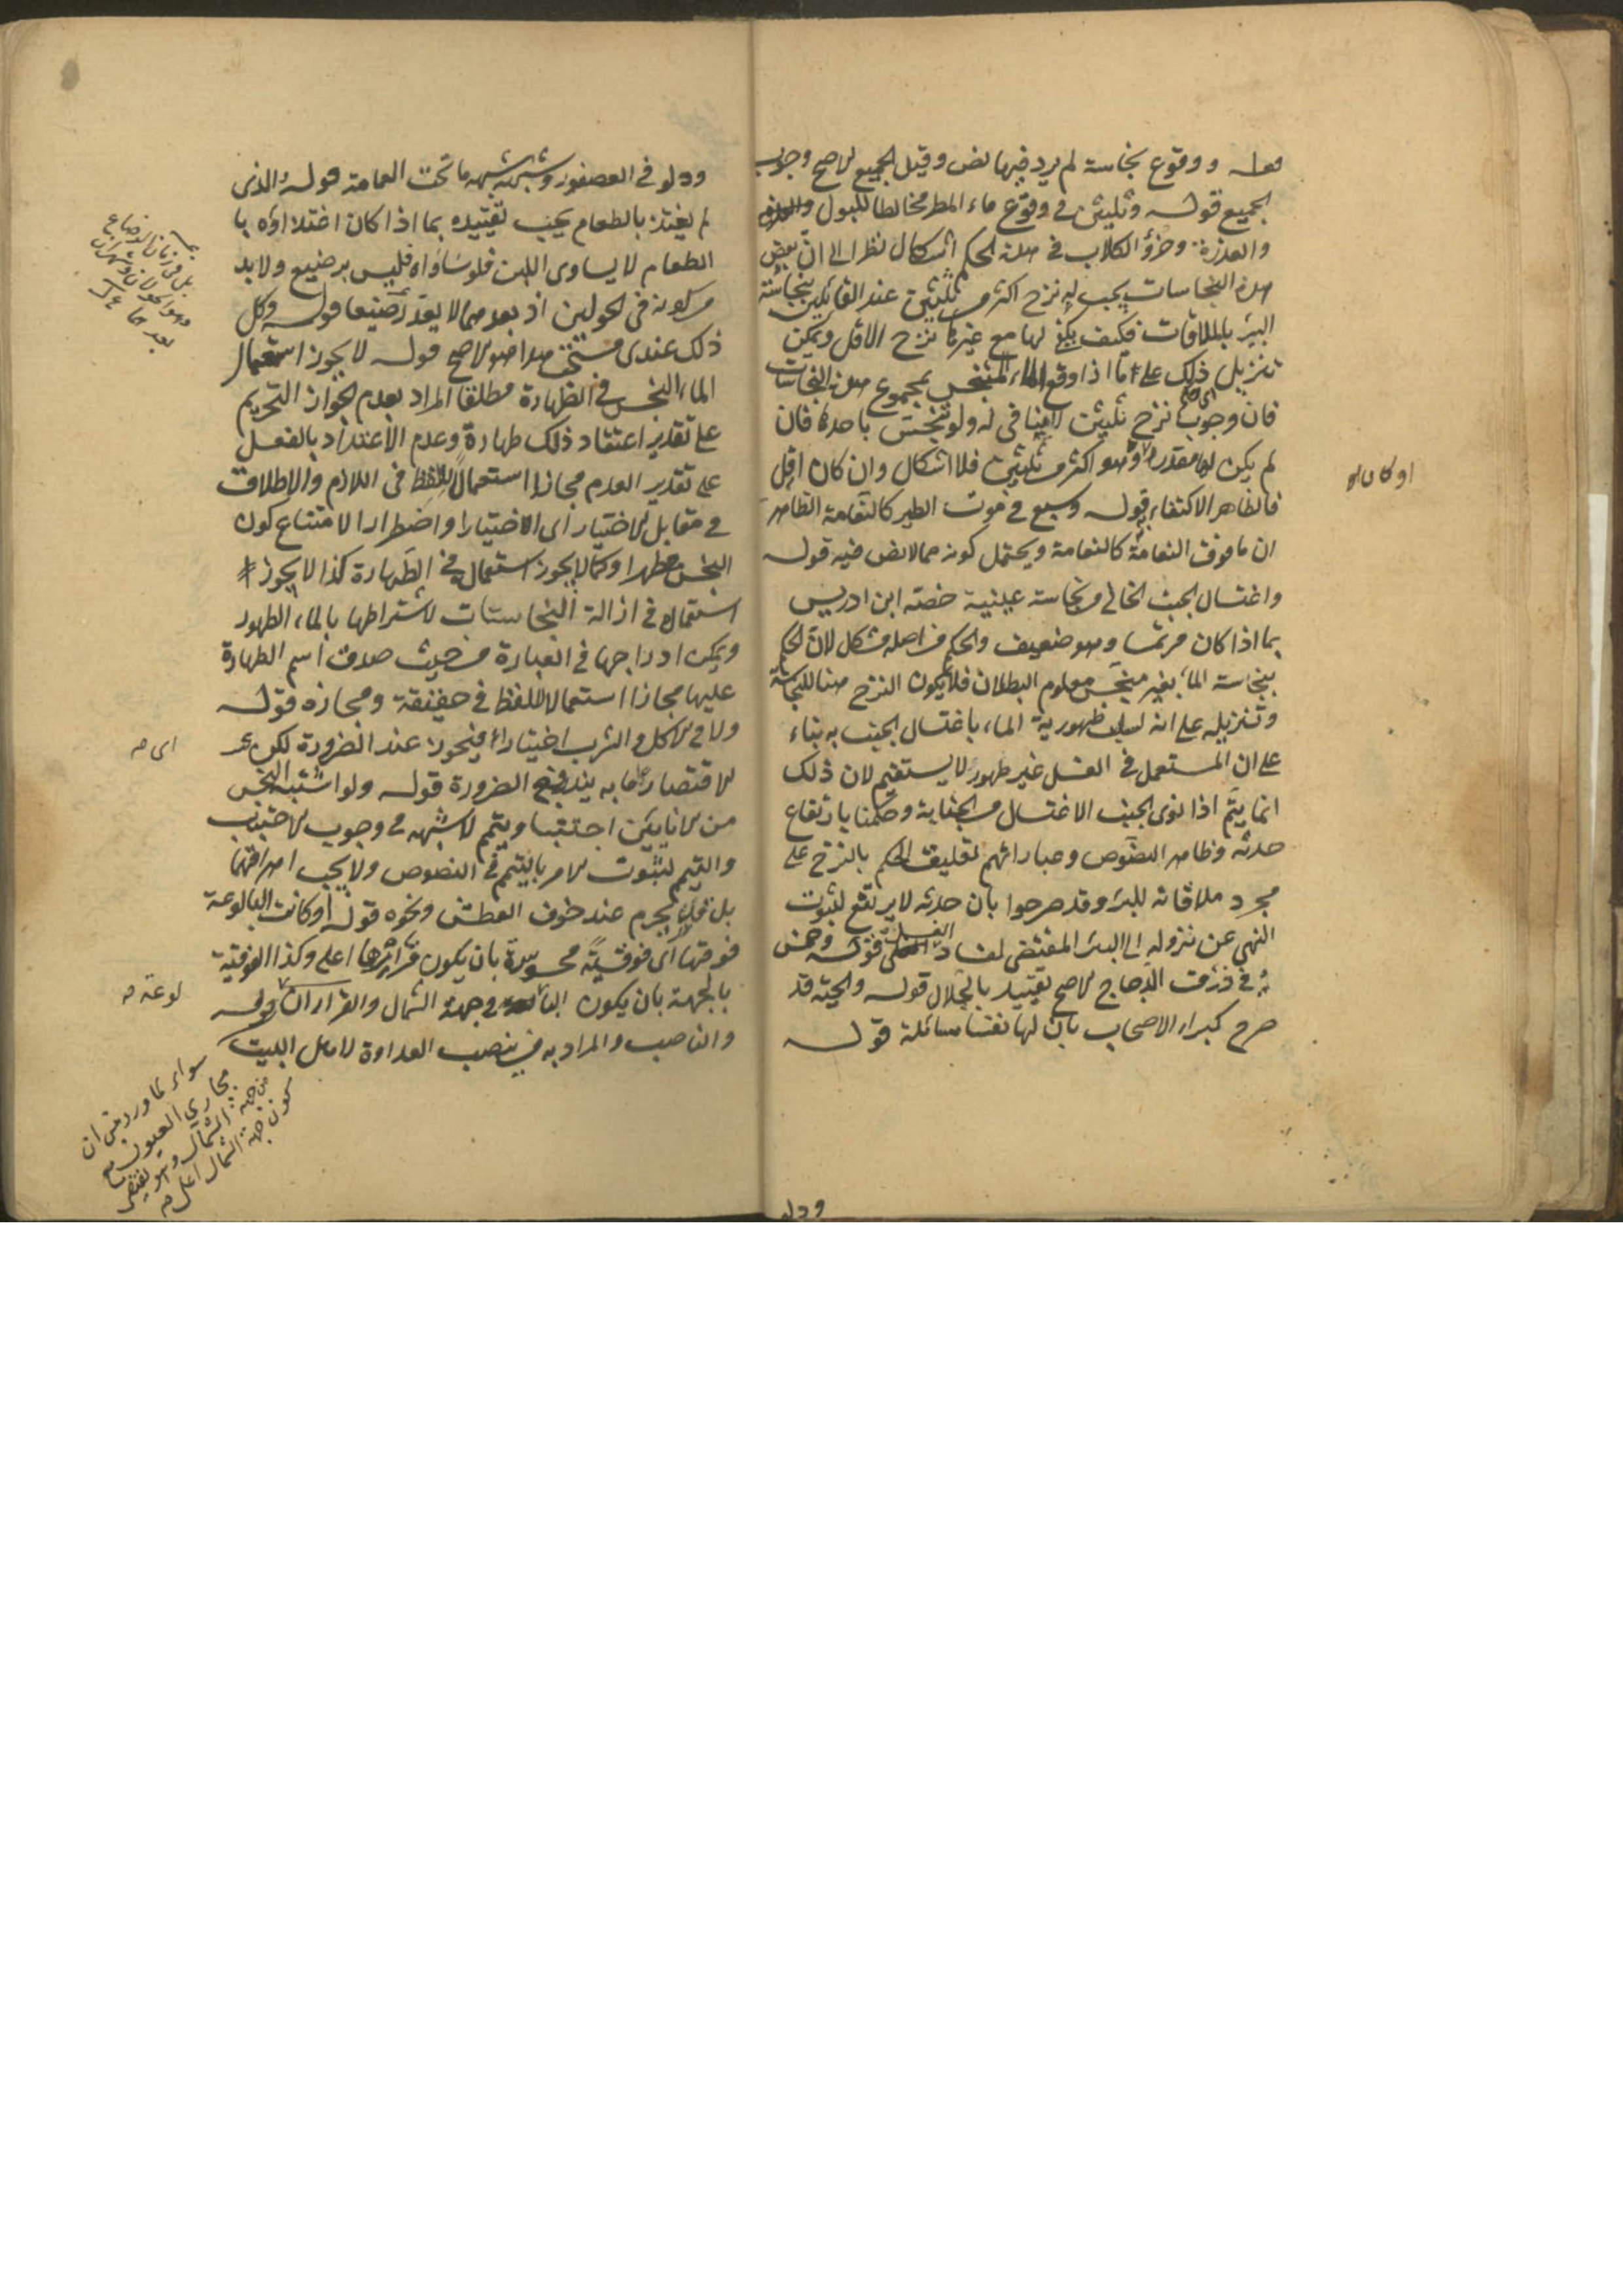 قوله ووقوع نجاسة لم يرد فيها نص وقيل الجميع الاصح وجوب
الجميع قوله وثلثين في وقوع ماء المطر مخالطا للبول
والعذرة وخرؤ الكلاب في هذه الحكم اشكال نظرا الى ان بعض
هذه النجاسات يجب له نزح اكثر من ثلثين عند القائلين بنجاسة
البئر بالملاقات فكيف يكفى لها مع غيرها نزح الاقل ويمكن
تنزيل ذلك على ما اذا وقع الماء المتنجس بمجموع هذه النجاسات
فان وجوب نزح ثلثين لا ينافى له ولو تنجس باحدها فان
لم يكن لها مقدر او هو اكثر من ثلثين فلا اشكال وان كان اقل
فالظاهر الاكتفاء به قوله وسبع في موت الطير كالنعامة الظاهر
ان ما فوق النعامة كالنعامة ويحتمل كونه مما لا نص فيه قوله
واغتسال الجنب الخالي من نجاسة عينية خصه ابن ادريس
بما اذا كان مرتمسا وهو ضعيف والحكم من اصله مشكل لان الحكم
بنجاسة الماء بغير منجس معلوم البطلان فلا يكون النزح هنا للنجاسة
وتنزيله على انه لسلب طهورية الماء باغتسال الجنب به بناء
على ان المستعمل في الغسل غير طهور لا يستقيم لان ذلك
انما يتم اذا نوى الجنب الاغتسال من الجنابة وحكمنا بارتفاع
حدثه وظاهر النصوص وعباراتهم تعليق الحكم بالنزح على
مجرد ملاقاته للبئر وقد صرحوا بان حدثه لا يرتفع لثبوت
النهي عن نزوله الى البئر المقتضى لفساد الغسل قوله وخمس
في ذرق الدجاج الاصح تقييده بالجلال قوله والحية قد
صرح كبراء الاصحاب بان لها نفسا سائلة قوله
ودلو
او كان له
ودلو في العصفور وشبهه شبهه ما تحت الحمامة قوله والذى
لم يغتذ بالطعام يجب تقييده بما اذا كان اغتذاؤه با
الطعام لا يساوى اللبن فلو ساواه فليس برضيع ولا بد
من كونه في الحولين اذ بعدهما لا يعد رضيعا قوله وكل
ذلك عندى مستحب هذا هو الاصح قوله لا يجوز استعمال
الماء النجس في الطهارة مطلقا المراد بعدم الجواز التحريم
على تقدير اعتقاد ذلك طهارة وعدم الاعتداد بالفعل
على تقدير العدم مجازا استعمالا للفظ في اللازم والاطلاق
في مقابل الاختيار اى الاختيارا واضطرارا لامتناع كون
النجس مطهرا وكما لا يجوز استعماله في الطهارة كذا لا يجوز
استعماله في ازالة النجاسات لاشتراطها بالماء الطهور
ويمكن ادراجها في العبارة من حيث صدق اسم الطهارة
عليها مجازا استعمالا للفظ في حقيقة ومجازه قوله
ولا في الاكل والشرب اختيارا فيجوز عند الضرورة لكن يجب
الاقتصار على ما به يندفع الضرورة قوله ولو اشتبه النجس
من الانائين اجتنبا ويتمم لا شبهه في وجوب الاجتناب
والتيمم لثبوت الامر بالتيمم في النصوص ولا يجب اهراقهما
بل قد يحرم عند خوف العطش ونحوه قوله او كانت البالوعة
فوقها اى فوقية محسوسة بان يكون قرارها اعلى وكذا الفوقية
بالجهة بان يكون البا في جهة الشمال والقراران قوله
والناصب والمراد به من ينصب العداوة لاهل البيت
اى صه
لوعة صه
سواء لما ورد من ان
مجاري العيون مع
من جهة الشمال وهو يقتضي
كون جهة الشمال اعلى صه